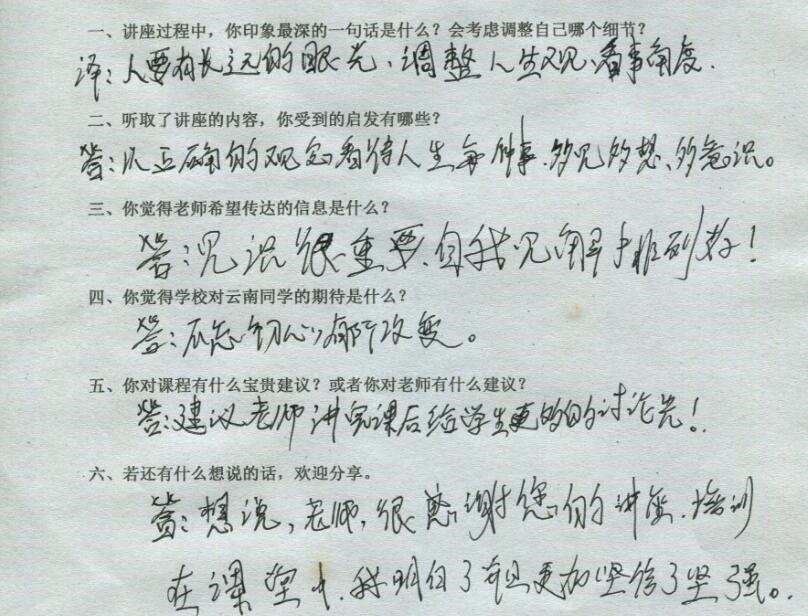 一、讲座过程中，你印象最深的一句话是什么？会考虑调整自己哪个细节？
译：人要有长远的眼光，调整人生观、看事角度．
二、听取了讲座的内容，你受到的启发有哪些？
答：以正确的观念看待人生每件事．多见多想、多意识。
三、你觉得老师希望传达的信息是什么？
答：见识很重要、自我见解
四、你觉得学校对云南同学的期待是什么？
答：不忘初心，有所改变。
五、你对课程有什么宝贵建议？或者你对老师有什么建议？
答：建议老师讲完课后给学生更多的讨论
六、若还有什么想说的话，欢迎分享。
答：想说，老师，很感谢您的讲座．培训
在课堂中．我明白了并且更加坚信了坚强。